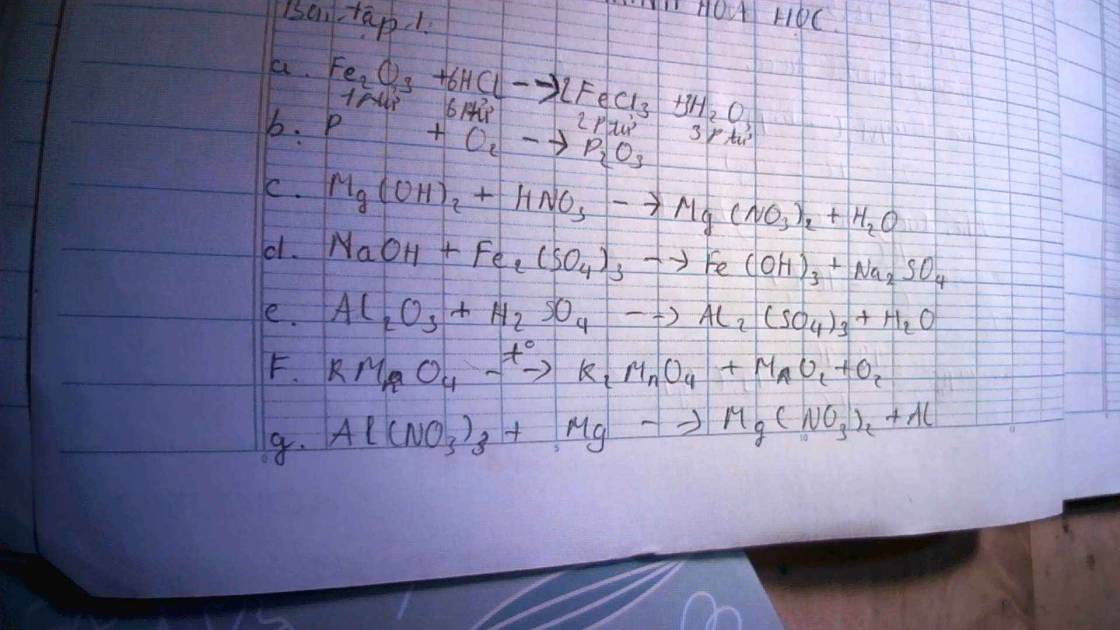 HOÁ HỌC
Bài tập 1.
a. Fe₂O₃ +6HCl --> 2FeCl₃ +3H₂O
1 ptử 6 ptử 2 ptử 3 ptử
b. P + O₂ --> P₂O₃
c. Mg(OH)₂ + HNO₃ --> Mg(NO₃)₂ + H₂O
d. NaOH + Fe₂(SO₄)₃ --> Fe(OH)₃ + Na₂SO₄
e. Al₂O₃ + H₂SO₄ --> Al₂(SO₄)₃ + H₂O
F. KMnO₄ --t°--> K₂MnO₄ + MnO₂ + O₂
g. Al(NO₃)₃ + Mg --> Mg(NO₃)₂ + Al